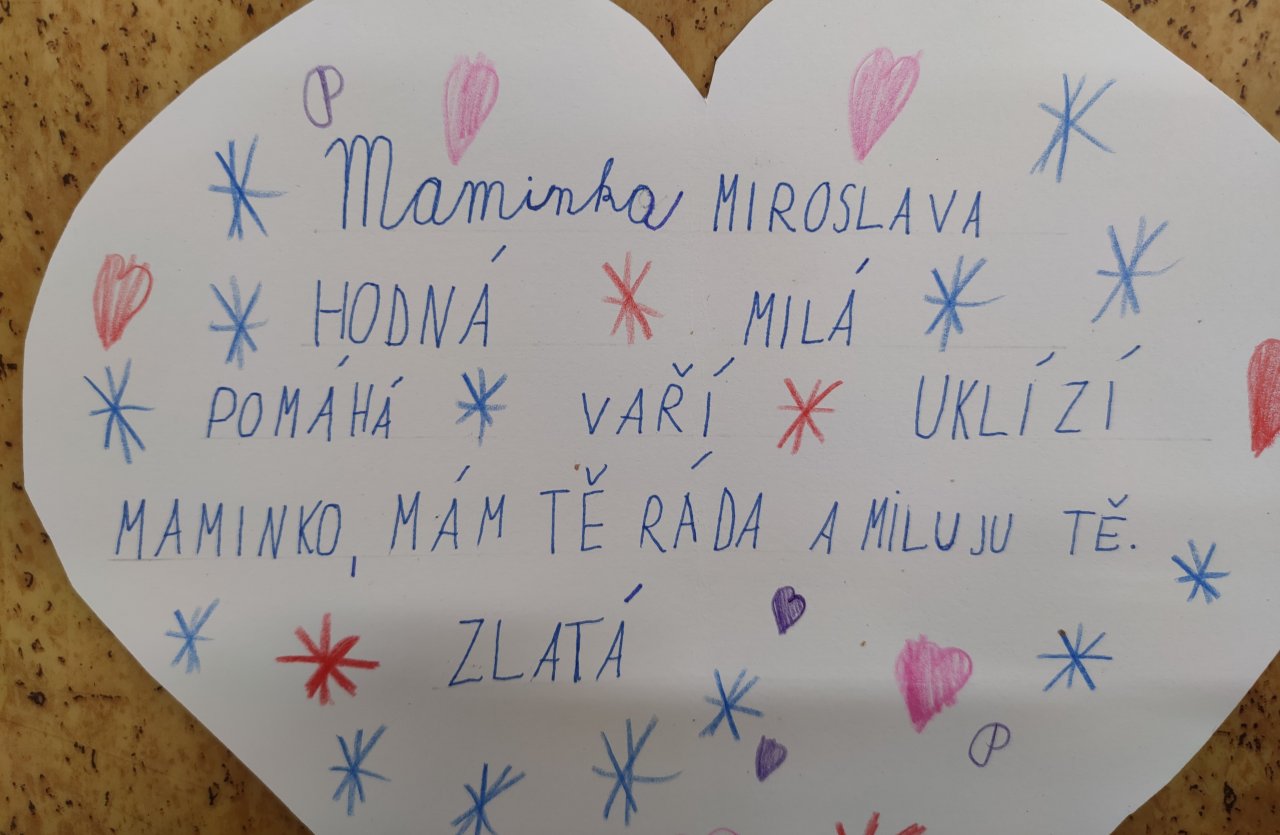 Maminka MIROSLAVA
HODNÁ MILÁ
POMÁHÁ VAŘÍ UKLÍZÍ
MAMINKO, MÁM TĚ RÁDA A MiLUJU TĚ.
ZLATÁ